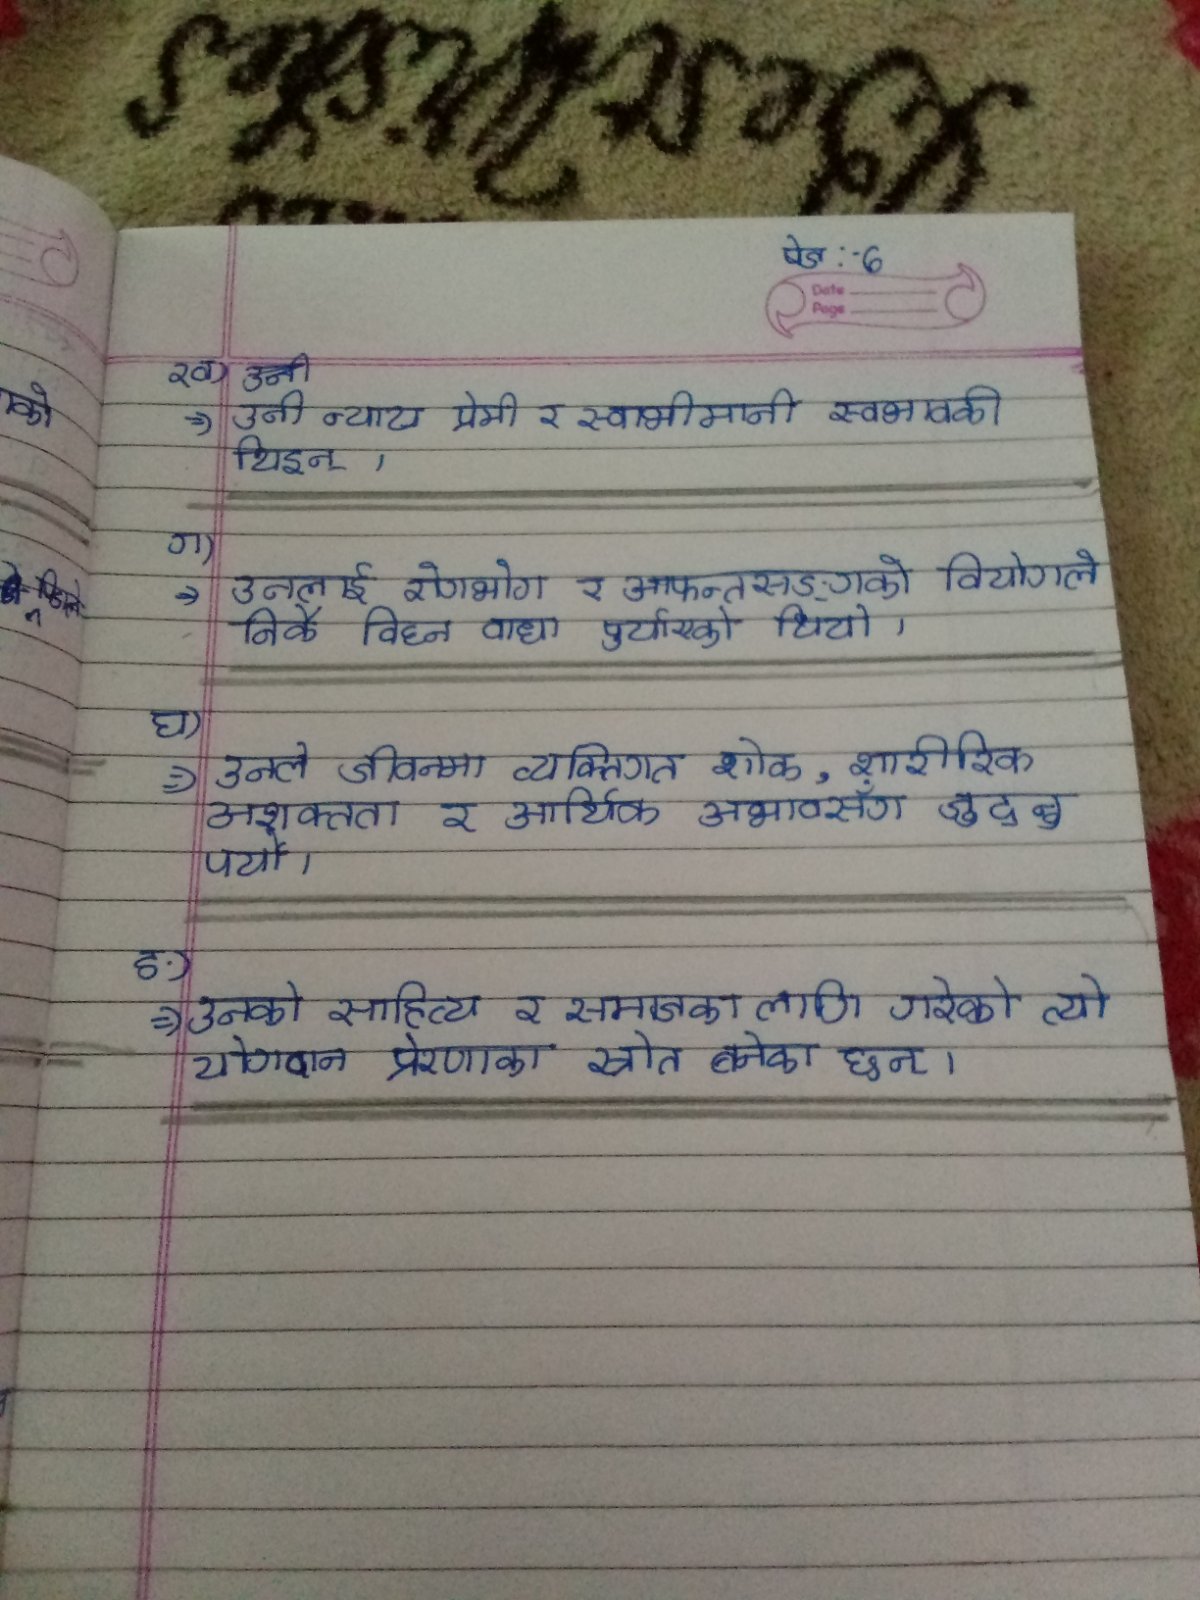 पेज :-6
Date
Page
ख) उनी
⇒ उनी न्याय प्रेमी र स्वाभीमानी स्वभावकी
थिइन् ।
ग)
⇒ उनलाई रोगभोग र आफन्तसङ्गको वियोगले
निकै विघ्न वाधा पुर्याएको थियो ।
घ)
⇒ उनले जीवनमा व्यक्तिगत शोक, शारीरिक
अशक्तता र आर्थिक अभावसँग जुट्नु
पर्यो ।
ङ)
⇒ उनको साहित्य र समाजका लागि गरेको त्यो
योगदान प्रेरणाका स्रोत बनेका छन् ।